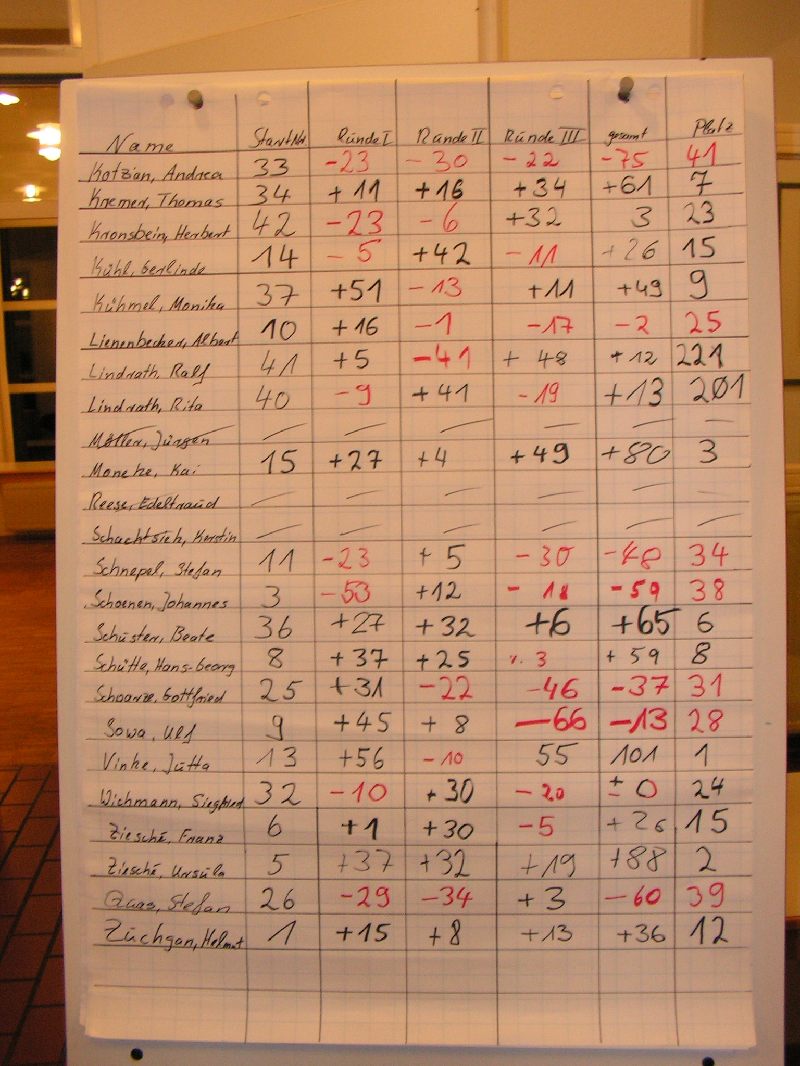 Name StartNr Runde I Runde II Runde III gesamt Platz
Kotzan, Andrea 33 -23 -30 -22 -75 41
Kremer, Thomas 34 +11 +16 +34 +61 7
Kronsbein, Herbert 42 -23 -6 +32 3 23
Kühl, Gerlinde 14 -5 +42 -11 +26 15
Kühmel, Monika 37 +51 -13 +11 +49 9
Lienenbecker, Albert 10 +16 -1 -17 -2 25
Lindrath, Ralf 41 +5 -41 +48 +12 221
Lindrath, Rita 40 -9 +41 -19 +13 201
Möller, Jürgen — — — — — —
Monetze, Kai 15 +27 +4 +49 +80 3
Reese, Edeltraud — — — — — —
Schachtsiek, Kerstin — — — — — —
Schnepel, Stefan 11 -23 +5 -30 -48 34
Schoenen, Johannes 3 -53 +12 -18 -59 38
Schüster, Beate 36 +27 +32 +6 +65 6
Schütte, Hans-Georg 8 +37 +25 3 +59 8
Schwarze, Gottfried 25 +31 -22 -46 -37 31
Sowa, Ulf 9 +45 +8 -66 -13 28
Vinke, Jutta 13 +56 -10 55 101 1
Wichmann, Siegfried 32 -10 +30 -20 ±0 24
Ziesché, Franz 6 +1 +30 -5 +26 15
Ziesché, Ursula 5 +37 +32 +19 +88 2
Quas, Stefan 26 -29 -34 +3 -60 39
Züchgan, Helmut 1 +15 +8 +13 +36 12